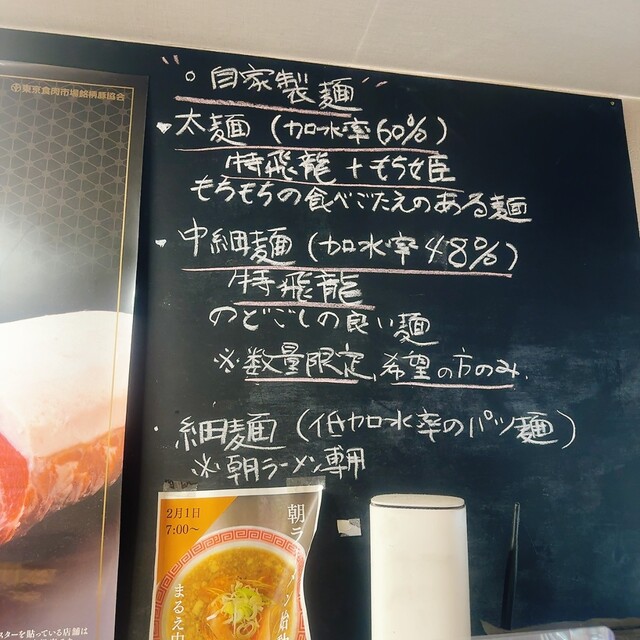 東京食肉市場銘柄豚協会
○自家製麺
・太麺(加水率60%)
特飛龍+もち姫
もちもちの食べごたえのある麺
・中細麺(加水率48%)
特飛龍
のどごしの良い麺
※数量限定、希望の方のみ.
・細麺(低加水率のパツ麺)
※朝ラーメン専用
2月1日
7:00~
朝ラ
まるえ中
スターを貼っている店舗は